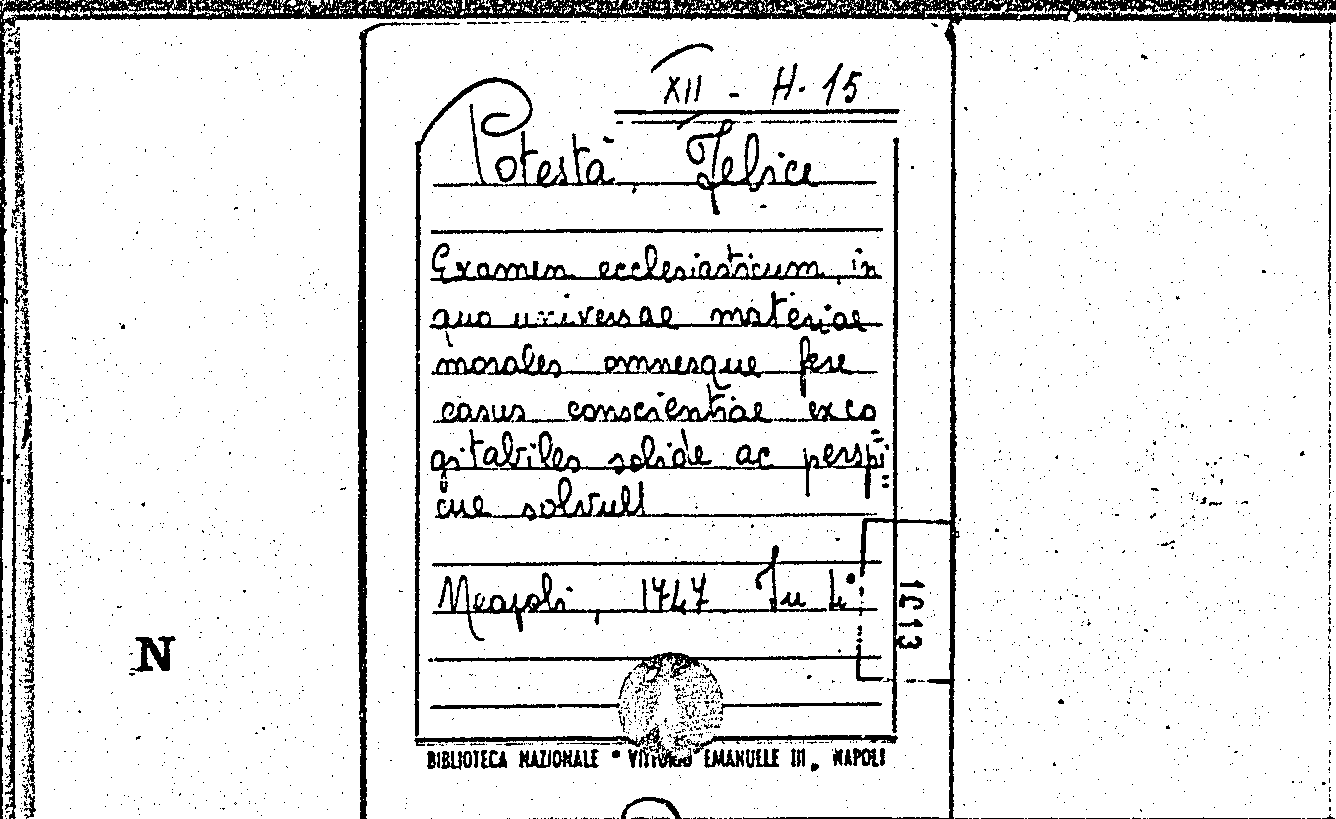 XII - H. 15
Potestà, Felice
Examen ecclesiasticum, in
quo universae materiae
morales omnesque fere
casus conscientiae exco
gitabiles solide ac perspi
cue solvu
Neapoli, 1747 In 4°
1013
N
BIBLIOTECA NAZIONALE " VITTORIO EMANUELE III „ NAPOLI